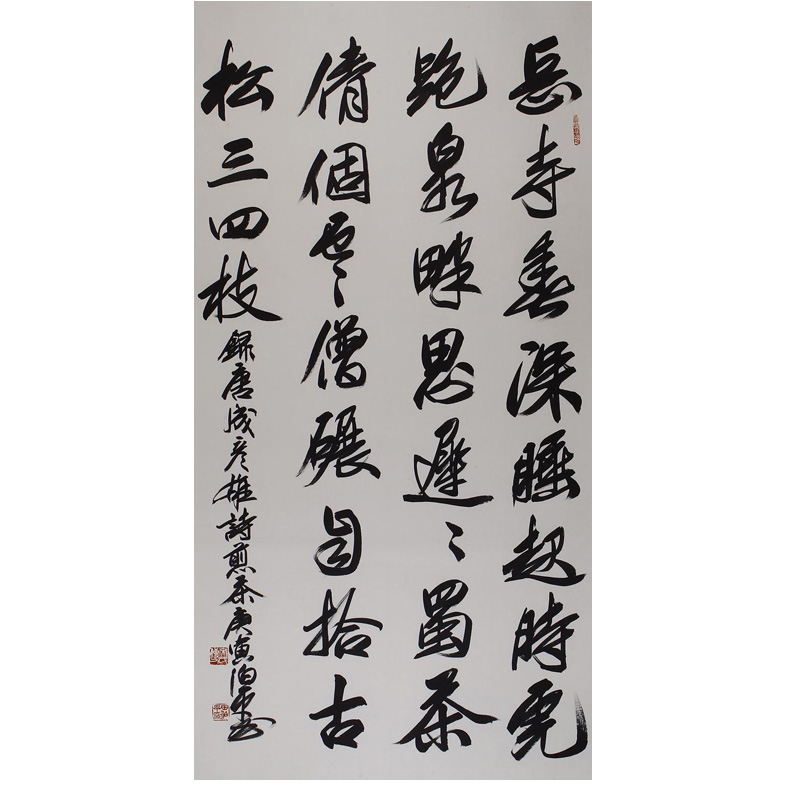 岳寺春深睡起時虎
跑泉畔思遲〻蜀茶
倩個雲僧碾自拾古
松三四枝
錄唐成彦雄詩煎茶庚寅